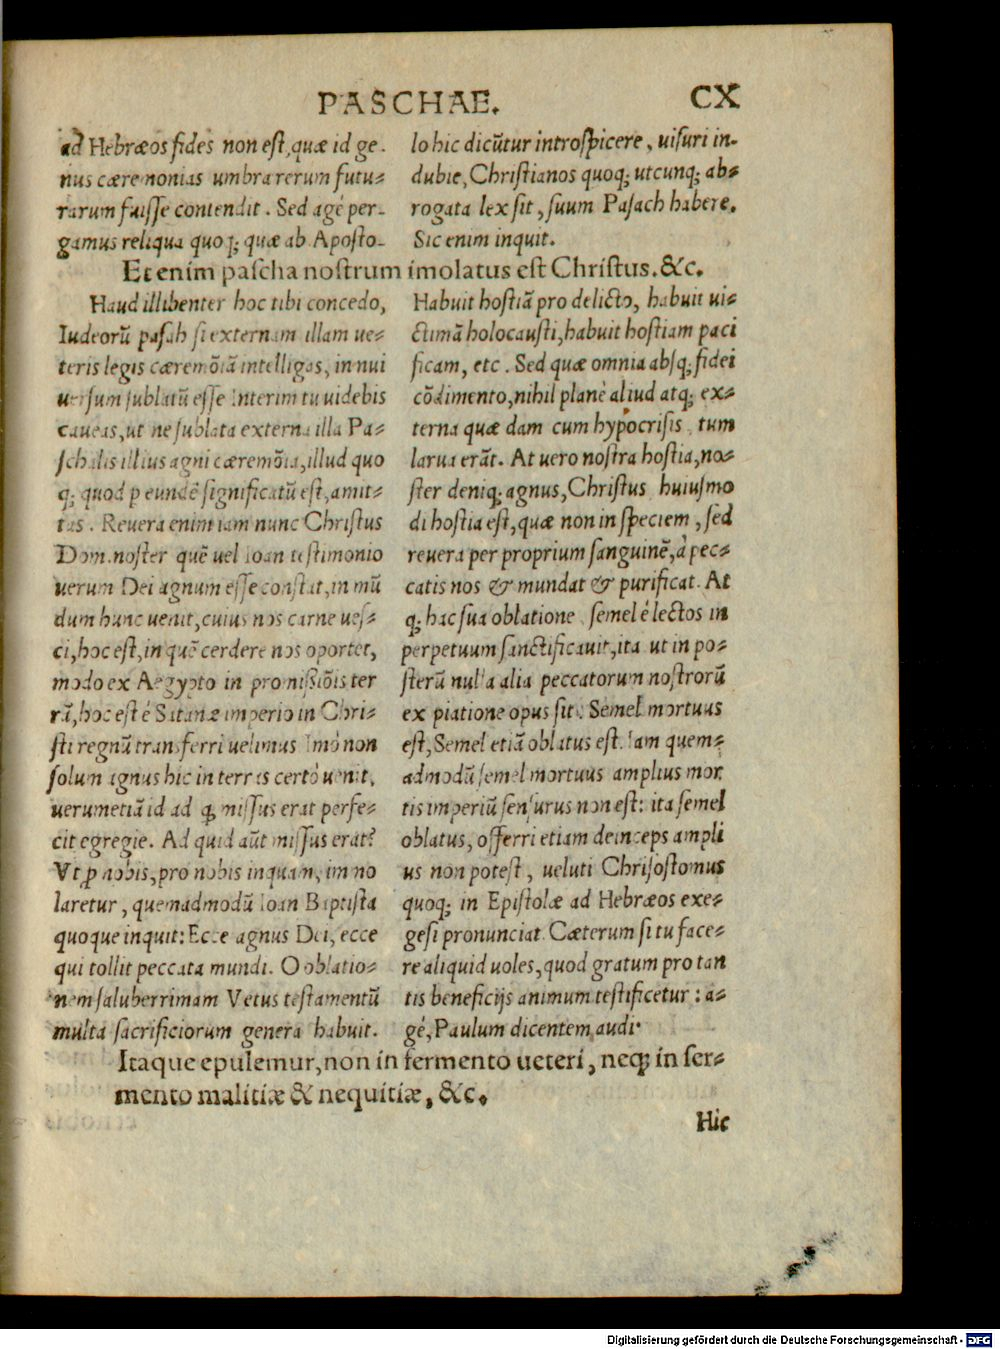 PASCHAE.
CX
ad Hebræos fides non est, quæ id ge-
nus cæremonias umbra rerum futu-
rarum fuisse contendit. Sed agé per-
gamus reliqua quoq; quæ ab Aposto-
lo hic dicūtur introspicere, uisuri in-
dubie, Christianos quoq; utcunq; ab-
rogata lex sit, suum Pasach habere.
Sic enim inquit.
Etenim pascha nostrum imolatus est Christus. &c.
Haud illibenter hoc tibi concedo,
Iudeorū pasah si externam illam ue-
teris legis cæremōiā intelligas, in nui
uersum sublatū esse Interim tu uidebis
caueas, ut ne sublata externa illa Pa-
schalis illius agni cæremōia, illud quo
q; quod p eundē significatū est, amit-
tas. Reuera enim iam nunc Christus
Dom. noster quē uel Ioan testimonio
uerum Dei agnum esse constat, in mū
dum hunc uenit, cuius nos carne ues-
ci, hoc est, in quē cerdere nos oportet,
modo ex Aegypto in promissiōis ter
rā, hoc est é Satanæ imperio in Chri-
sti regnū transferri uelimus Imó non
solum agnus hic in terras certò uenit,
uerumetiā id ad q̨ missus erat perfe-
cit egregie. Ad quid aūt missus erat?
Vt ꝓ nobis, pro nobis inquam, immo
laretur, quemadmodū Ioan Baptista
quoque inquit: Ecce agnus Dei, ecce
qui tollit peccata mundi. O oblatio-
nem saluberrimam Vetus testamentū
multa sacrificiorum genera habuit.
Habuit hostiā pro delicto, habuit ui-
ctimā holocausti, habuit hostiam paci
ficam, etc. Sed quæ omnia absq; fidei
cōdimento, nihil planè aliud atq; ex-
terna quædam cum hypocrisis, tum
larua erāt. At uero nostra hostia, no-
ster deniq; agnus, Christus huiusmo
di hostia est, quæ non in speciem, sed
reuera per proprium sanguinē, à pec-
catis nos & mundat & purificat. At
q; hac sua oblatione semel électos in
perpetuum sanctificauit, ita ut in po-
sterū nulla alia peccatorum nostrorū
ex piatione opus sit. Semel mortuus
est, Semel etiā oblatus est. Iam quem-
admodū semel mortuus amplius mor
tis imperiū sensurus non est: ita semel
oblatus, offerri etiam deinceps ampli
us non potest, ueluti Chrisostomus
quoq; in Epistolæ ad Hebræos exe-
gesi pronunciat. Cæterum si tu face-
re aliquid uoles, quod gratum pro tan
tis beneficijs animum testificetur: a-
gé, Paulum dicentem audi.
Itaque epulemur, non in fermento ueteri, neq̨ in fer-
mento malitiæ & nequitiæ, &c.
Hic
Digitalisierung gefördert durch die Deutsche Forschungsgemeinschaft - DFG